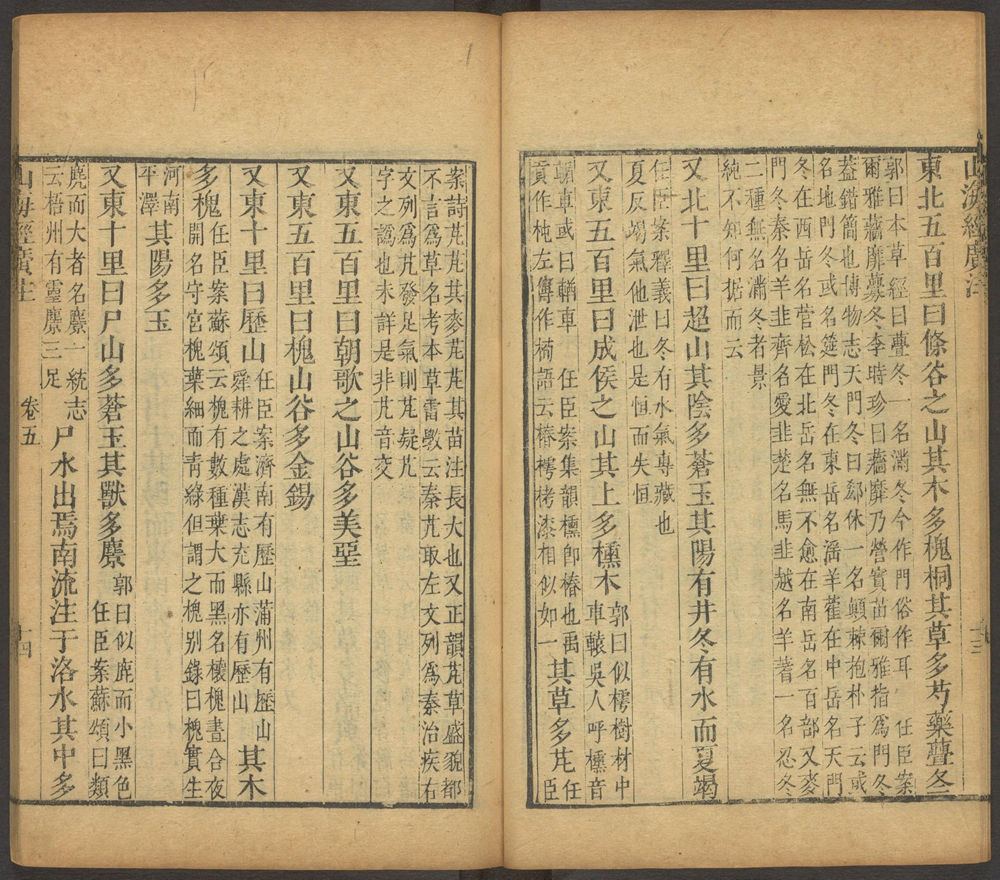 山海經廣注
十三
東北五百里曰條谷之山其木多槐桐其草多芍藥虋冬
郭曰本草經曰虋冬一名滿冬今作門俗作耳 任臣案
爾雅蘠靡虋冬李時珍曰蘠靡乃營實苗爾雅指爲門冬
蓋錯簡也博物志天門冬曰郄休一名顛棘抱朴子云或
名地門冬或名筳門冬在東岳名滛羊藿在中岳名天門
冬在西岳名菅松在北岳名無不愈在南岳名百部又麥
門冬秦名羊韭齊名愛韭楚名馬韭越名羊蓍一名忍冬
二種無名滿冬者景
純不知何据而云
又北十里曰超山其陰多蒼玉其陽有井冬有水而夏竭
任臣案釋義曰冬有水氣專藏也
夏反竭氣他泄也是恒而失恒
又東五百里曰成侯之山其上多櫄木
郭曰似樗樹材中
車轅吳人呼櫄音
輴車或曰輶車 任臣案集韻櫄卽椿也禹
貢作杶左傳作橁語云椿樗栲漆相似如一
其草多芃
任
臣
案詩芃芃其麥芃芃其苗注長大也又正韻芃草盛貌都
不言爲草名考本草雷斆云秦芃取左文列爲秦治疾右
文列爲芃發足氣則芃疑艽
字之譌也未詳是非艽音交
又東五百里曰朝歌之山谷多美堊
又東五百里曰槐山谷多金錫
又東十里曰歷山
任臣案濟南有歷山蒲州有歷山
舜耕之處漢志充縣亦有歷山
其木
多槐
任臣案蘇頌云槐有數種葉大而黑名櫰槐晝合夜
開名守宮槐葉細而青綠但謂之槐别錄曰槐實生
河南
平澤
其陽多玉
又東十里曰尸山多蒼玉其獸多麖
郭曰似鹿而小黑色
任臣案蘇頌曰類
麂而大者名麖一統志
云梧州有靈麖三足
尸水出焉南流注于洛水其中多
山海經廣注
卷五
十四